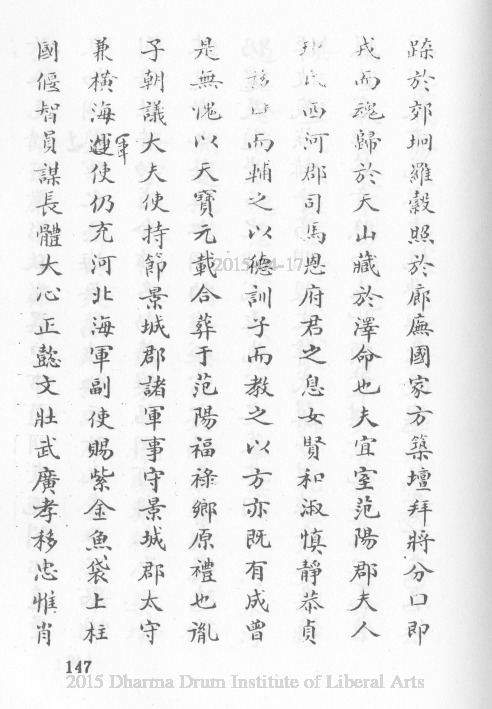 跡於郊坰羅縠照於廊廡國家方築壇拜將分口即
戎而魂歸於天山藏於澤命也夫宜室范陽郡夫人
氏西河郡司馬恩府君之息女賢和淑慎靜恭貞
而輔之以德訓子而教之以方亦既有成曾
是無愧以天寶元載合葬于范陽福祿鄉原禮也胤
子朝議大夫使持節景城郡諸軍事守景城郡太守
兼橫海運軍使仍充河北海軍副使賜紫金魚袋上柱
國偃智員謀長體大心正懿文壯武廣孝移忠惟肖
147
2015-04-17
2015 Dharma Drum Institute of Liberal Arts